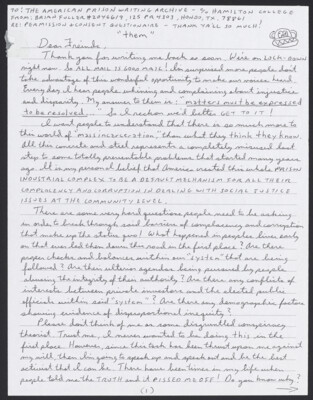 TO: THE AMERICAN PRISON WRITING ARCHIVE - % HAMILTON COLLEGE
RE: PERMISSIONS/CONSENT QUESTIONNAIRE - THANK YA'LL SO MUCH!
"them"
Dear Friends,
Thank you for writing me back so soon. We're on LOCK-DOWN
right now. So ALL MAIL IS GOOD MAIL! I'm surprised more people don't
take advantage of this wonderful opportunity to make our voices heard.
Every day I hear people whining and complaining about injustice
and disparity. My answer to them is: matters must be expressed
to be resolved. So I reckon we'd better GET TO IT!
I want people to understand that there is so much more to
this world of "MASS INCARCERATION," than what they think they know.
All this concrete and steel represents a completely misused last
step to some totally preventable problems that started many years
ago. It is my personal belief that America created this entire PRISON
INDUSTRIAL COMPLEX TO BE A DEFAULT MECHANISM FOR ALL THEIR
COMPLACENCY AND CORRUPTION IN DEALING WITH SOCIAL JUSTICE
ISSUES AT THE COMMUNITY LEVEL.
There are some very hard questions people need to be asking
in order to break through said barriers of complacency and corruption
that make up the status quo! What happened in peoples lives early
on that ever led them down this road in the first place? Are there
proper checks and balances within our "system" that are being
followed? Are there ulterior agendas being pursued by people
abusing the integrity of their authority? Are there any conflicts of
interests between private investors and the elected public
officials within said "system"? Are there any demographic factors
showing evidence of disproportional inequity?
Please don't think of me as some disgruntled conspiracy
theorist. Trust me, I never wanted to be doing this in the
first place. However, since this task has been thrust upon me against
my will, then I'm going to speak up and speak out and be the best
activist that I can be. There have been times in my life when
people told me the TRUTH and it PISSED ME OFF! Do you know why?
(1)